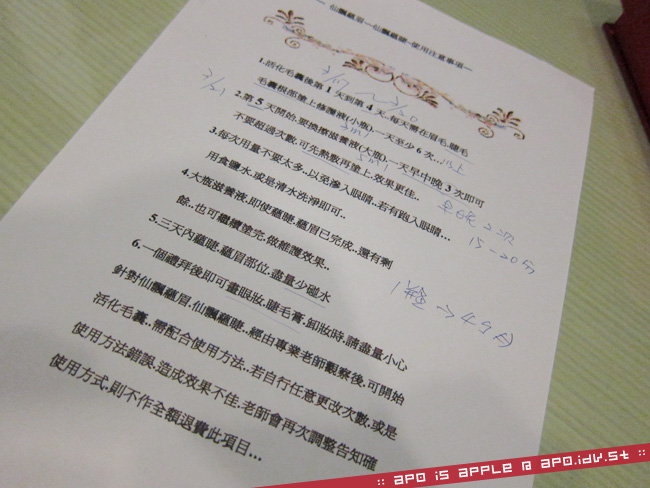 —仙飄蘊眉—仙飄蘊睫-使用注意事項—
3/17 ～ 3/20
1.活化毛囊後第1天到第4天..每天需在眉毛.睫毛
毛囊根部塗上修護液(小瓶)..一天至少6次...以上
3/21
3ml
2.第5天開始.要換擦滋養液(大瓶)..一天早中晚3次即可
5ml
不要超過次數.可先熱敷再塗上.效果更佳..
早晚2次
15-20分
3.每次用量不要太多..以免滲入眼睛..若有跑入眼睛...
用食鹽水.或是清水洗淨即可..
4.大瓶滋養液.即使蘊睫.蘊眉已完成..還有剩
餘..也可繼續塗完.做維護效果..
1 → 4個月
5.三天內蘊睫.蘊眉部位.盡量少碰水
6.一個禮拜後即可畫眼妝.睫毛膏.卸妝時.請盡量小心
針對仙飄蘊眉.仙飄蘊睫..經由專業老師觀察後.可開始
活化毛囊..需配合使用方法..若自行任意更改次數.或是
使用方法錯誤.造成效果不佳.老師會再次調整告知確
使用方式.則不作全額退費此項目...
:: apo is apple @ apo.idv.st ::